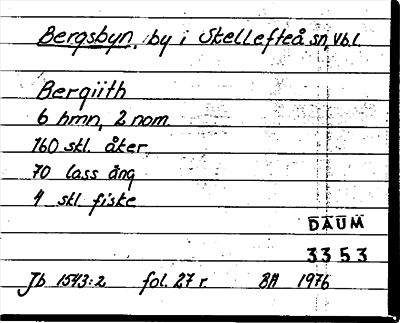 Bergsbyn, by i Skellefteå sn, Vb.l.
Bergiith
6 hmn, 2 nom.
160 skl. åker
70 lass äng
4 skl fiske
DAUM
3353
Jb 1543:2 fol. 27 r. BH 1976